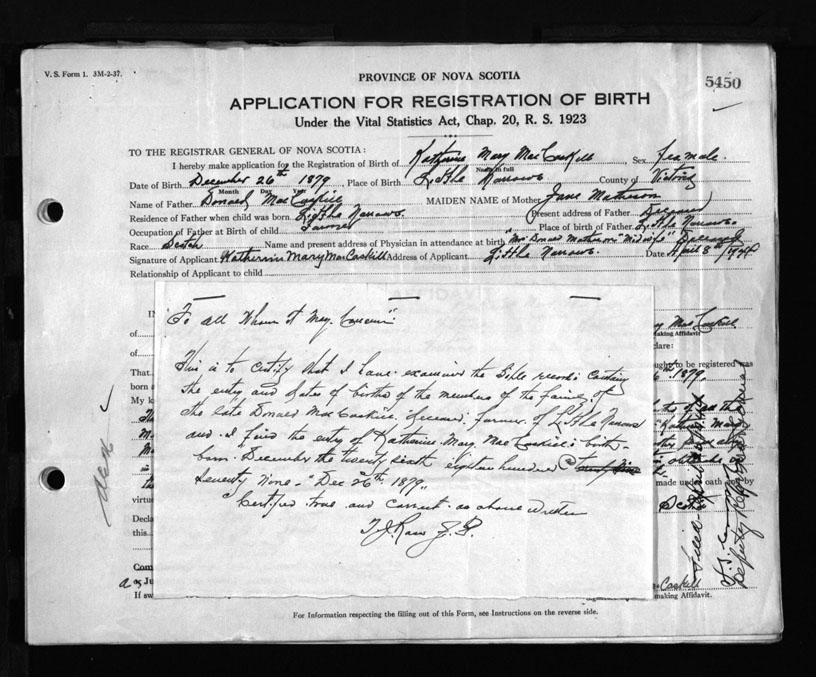 V. S. Form 1. 3M-2-37.
PROVINCE OF NOVA SCOTIA
5450
APPLICATION FOR REGISTRATION OF BIRTH
Under the Vital Statistics Act, Chap. 20, R. S. 1923
TO THE REGISTRAR GENERAL OF NOVA SCOTIA:
I hereby make application for the Registration of Birth of Katherine Mary MacCaskill Sex female.
Name in full
Date of Birth December 26th 1879 Place of Birth Little Narrows County of Victoria
Month Day Year
Name of Father Donald MacCaskill MAIDEN NAME of Mother Jane Matheson
Residence of Father when child was born Little Narrows. Present address of Father Deceased
Occupation of Father at Birth of child Farmer Place of birth of Father Little Narrows.
Race Scotch Name and present address of Physician in attendance at birth "Mrs Donald Matheson" "Midwife" Deceased
Signature of Applicant Katherine Mary MacCaskill Address of Applicant Little Narrows. Date April 8th 1944
Relationship of Applicant to child
To all Whom it May Concern"
This is to Certify that I have examined the Bible records Containg
the entry and dates of births of the members of the family of
the late Donald MacCaskill. deceased, farmer. of Little Narrows
and I find the entry of Katherine Mary MacCaskill's birth.
born December the twenty sixth eighteen hundred &
Seventy Nine - "Dec 26th 1879"
Certified true and correct as above written
J. P.
MacCaskill
making Affidavit
clare:
ought to be registered was
1879.
That
born
My k
made under oath
virtue
Decla
this
Com
as Ju
If sw
Caskill
making Affidavit.
Deputy
For Information respecting the filling out of this Form, see Instructions on the reverse side.